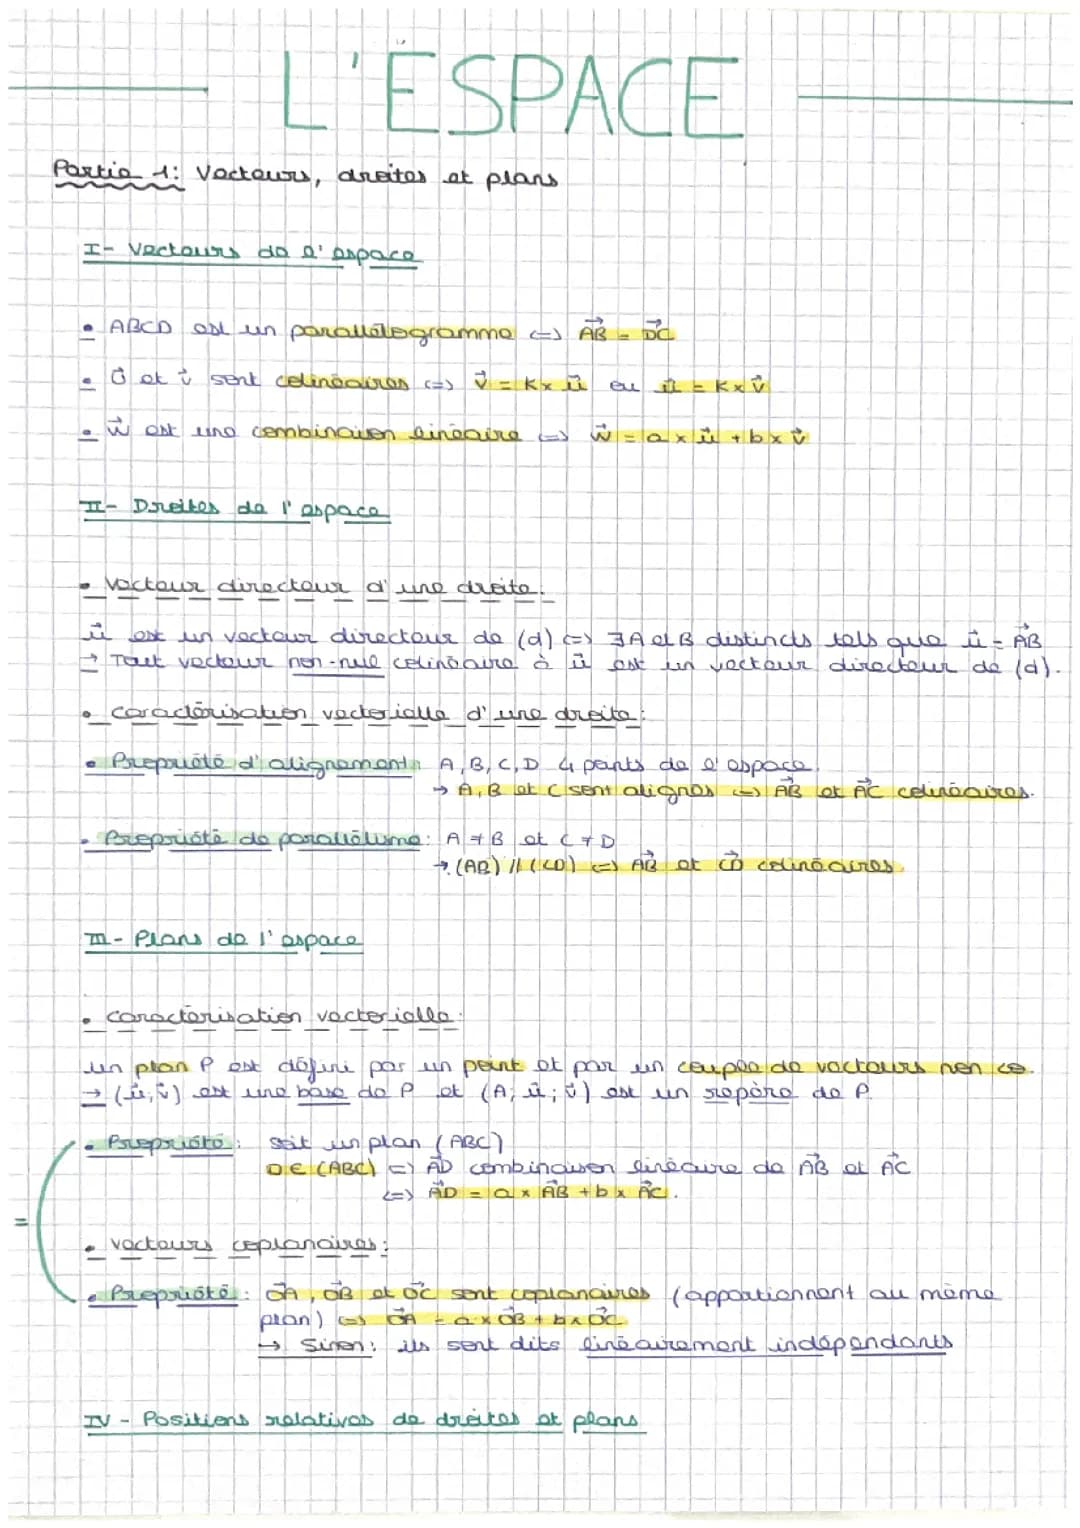 L'ESPACE
Partie 1: Vecteurs, droites et plans
I- Vecteurs de l'espace
• ABCD est un parallélogramme <=> AB⃗ = DC⃗
• u⃗ et v⃗ sont colinéaires <=> v⃗ = K x u⃗ ou u⃗ = K x v⃗
• w⃗ est une combinaison linéaire <=> w⃗ = a x u⃗ + b x v⃗
II- Droites de l'espace
• Vecteur directeur d'une droite:
u⃗ est un vecteur directeur de (d) <=> ∃ A et B distincts tels que u⃗ = AB⃗
→ Tout vecteur non-nul colinéaire à u⃗ est un vecteur directeur de (d).
• caractérisation vectorielle d'une droite:
• Propriété d'alignement: A, B, C, D 4 points de l'espace.
→ A, B et C sont alignés <=> AB⃗ et AC⃗ colinéaires.
• Propriété de parallélisme: A ≠ B et C ≠ D
→ (AB) // (CD) <=> AB⃗ et CD⃗ colinéaires.
III- Plans de l'espace
• caractérisation vectorielle:
un plan P est défini par un point et par un couple de vecteurs non co.
→ (u⃗; v⃗) est une base de P et (A; u⃗; v⃗) est un repère de P.
• Propriété: soit un plan (ABC)
D ∈ (ABC) <=> AD⃗ combinaison linéaire de AB⃗ et AC⃗
<=> AD⃗ = a x AB⃗ + b x AC⃗.
=
• vecteurs coplanaires:
• Propriété: OA⃗, OB⃗ et OC⃗ sont coplanaires (appartiennent au même
plan) <=> OA⃗ = a x OB⃗ + b x OC⃗
→ Sinon: ils sont dits linéairement indépendants
IV - Positions relatives de droites et plans